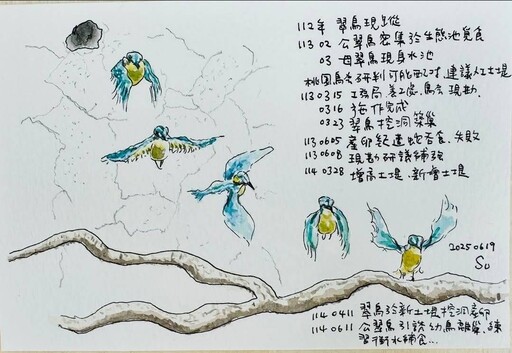 112年 翠鳥現蹤
113 02 公翠鳥密集於生態池覓食
03 母翠鳥現身水池
桃園鳥會研判可能配對, 建議人工土堤
113 0315 工務局 養工處, 鳥會 現勘.
0316 施作完成
0323 翠鳥挖洞築巢
113 0605 產卵期遭蛇吞食, 失敗
113 0608 現勘研議補強
114 0328 增高土堤. 新增土堤
2025 0619
Su
114 0411 翠鳥於新土堤挖洞產卵
114 0611 公翠鳥引誘幼鳥離巢, 練
習衝水補食...